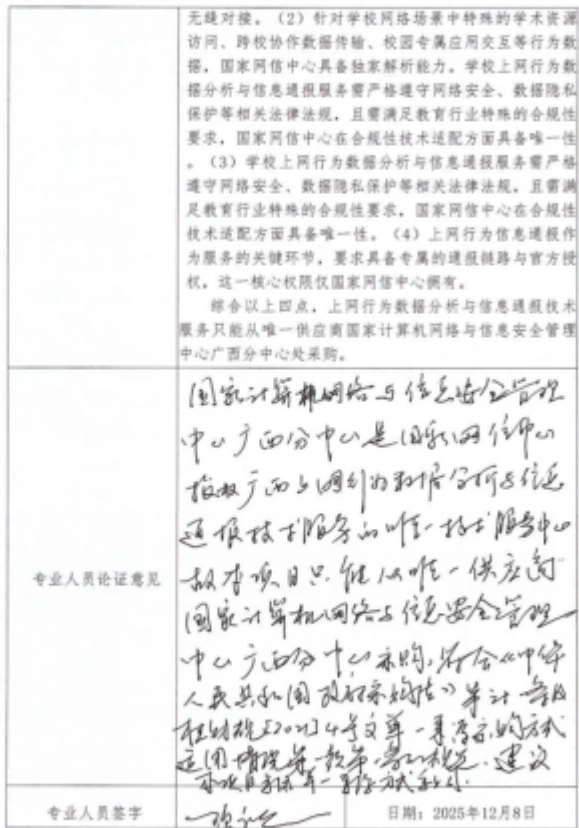 无缝对接。（2）针对学校网络场景中特殊的学术资源
访问、跨校协作数据传输、校园专属应用交互等行为数
据，国家网信中心具备独家解析能力。学校上网行为数
据分析与信息通报服务需严格遵守网络安全、数据隐私
保护等相关法律法规，且需满足教育行业特殊的合规性
要求，国家网信中心在合规性技术适配方面具备唯一性
。（3）学校上网行为数据分析与信息通报服务需严格
遵守网络安全、数据隐私保护等相关法律法规，且需满
足教育行业特殊的合规性要求，国家网信中心在合规性
技术适配方面具备唯一性。（4）上网行为信息通报作
为服务的关键环节，要求具备专属的通报链路与官方授
权，这一核心权限仅国家网信中心拥有。
综合以上四点，上网行为数据分析与信息通报技术
服务只能从唯一供应商国家计算机网络与信息安全管理
中心广西分中心处采购。
专业人员论证意见
国家计算机网络与信息安全管理
中心广西分中心是国家网信中心
授权广西上网行为数据分析与信息
通报技术服务的唯一技术服务中心
故本项目只能从唯一供应商
国家计算机网络与信息安全管理
中心广西分中心采购，符合《中华
人民共和国政府采购法》
[2021]4号文单一来源采购方式
适用情况第一款第 建议
本项目采用单一来源方式采购.
专业人员签字
日期：2025年12月8日